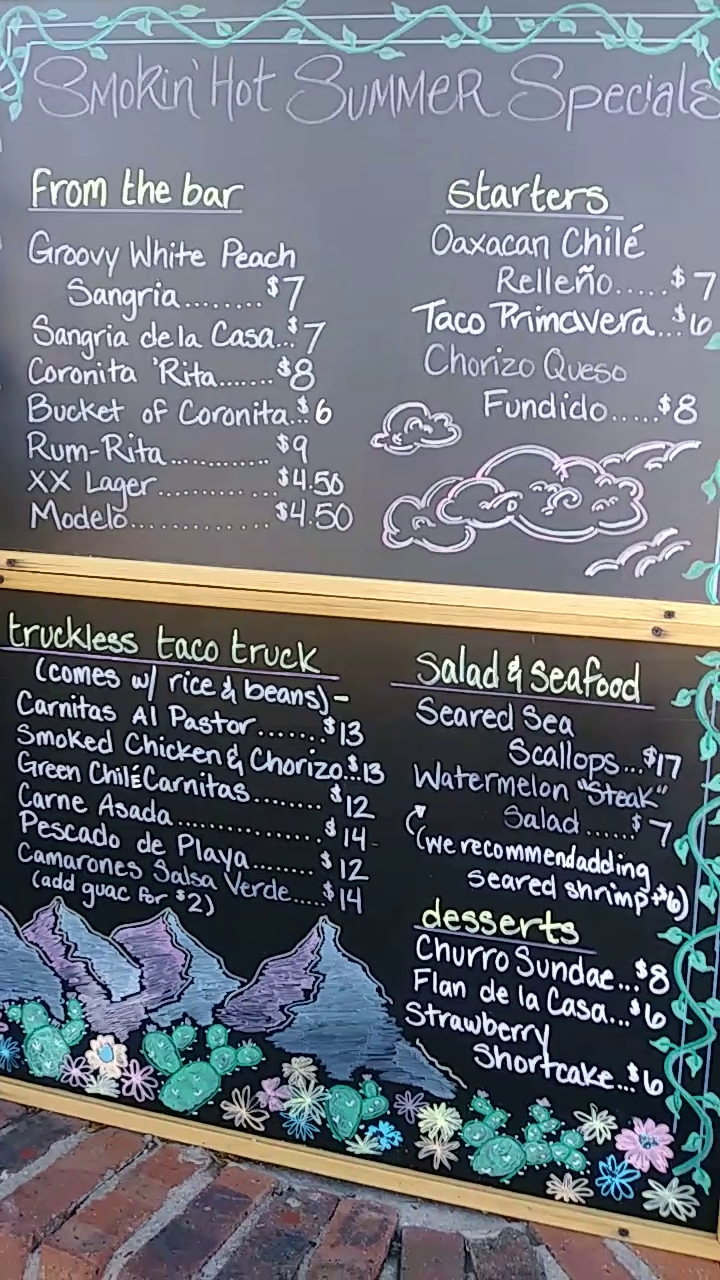 Smokin' Hot SUMMER Specials
From the bar
Groovy White Peach
Sangria........$7
Sangria de la Casa...$7
Coronita 'Rita.......$8
Bucket of Coronita...$6
Rum-Rita............$9
XX Lager............$4.50
Modelo.............$4.50
starters
Oaxacan Chilé
Relleño.....$7
Taco Primavera...$6
Chorizo Queso
Fundido.....$8
truckless taco truck
(comes w/ rice & beans)-
Carnitas Al Pastor.......$13
Smoked Chicken & Chorizo...$13
Green Chilé Carnitas........$12
Carne Asada................$14
Pescado de Playa........$12
Camarones Salsa Verde.....$14
(add guac for $2)
Salad & Seafood
Seared Sea
Scallops...$17
Watermelon "Steak"
Salad......$7
(we recommend adding
seared shrimp +$6)
desserts
Churro Sundae...$8
Flan de la Casa...$6
Strawberry
Shortcake...$6